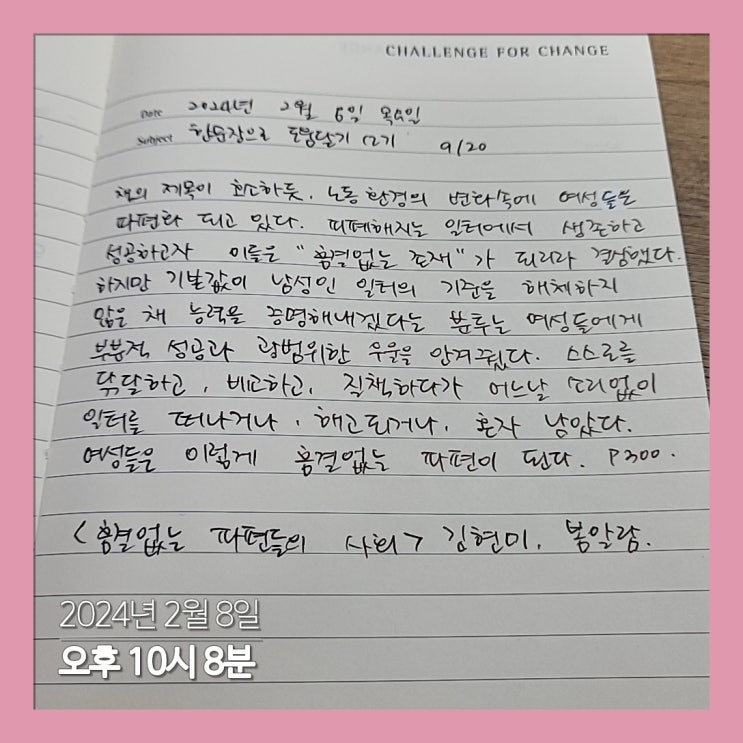 CHALLENGE FOR CHANGE
Date 2024년 2월 8일 목요일
Subject 한순장으로 도움닫기 12기 9/20
책의 제목이 호소하듯, 노동 환경의 변화속에 여성들은
파편화 되고 있다. 피폐해지는 일터에서 생존하고
성공하고자 이들은 "흠결없는 존재"가 되리라 결심했다.
하지만 기본값이 남성인 일터의 기준을 해체하지
않은 채 능력을 증명해내겠다는 분투는 여성들에게
부분적 성공과 광범위한 우울을 안겨줬다. 스스로를
닦달하고, 비교하고, 질책하다가 어느날 소리없이
일터를 떠나거나, 해고되거나, 혼자 남았다.
여성들은 이렇게 흠결없는 파편이 된다. P300.
<흠결없는 파편들의 사회> 김현미, 봄알람.
2024년 2월 8일
오후 10시 8분